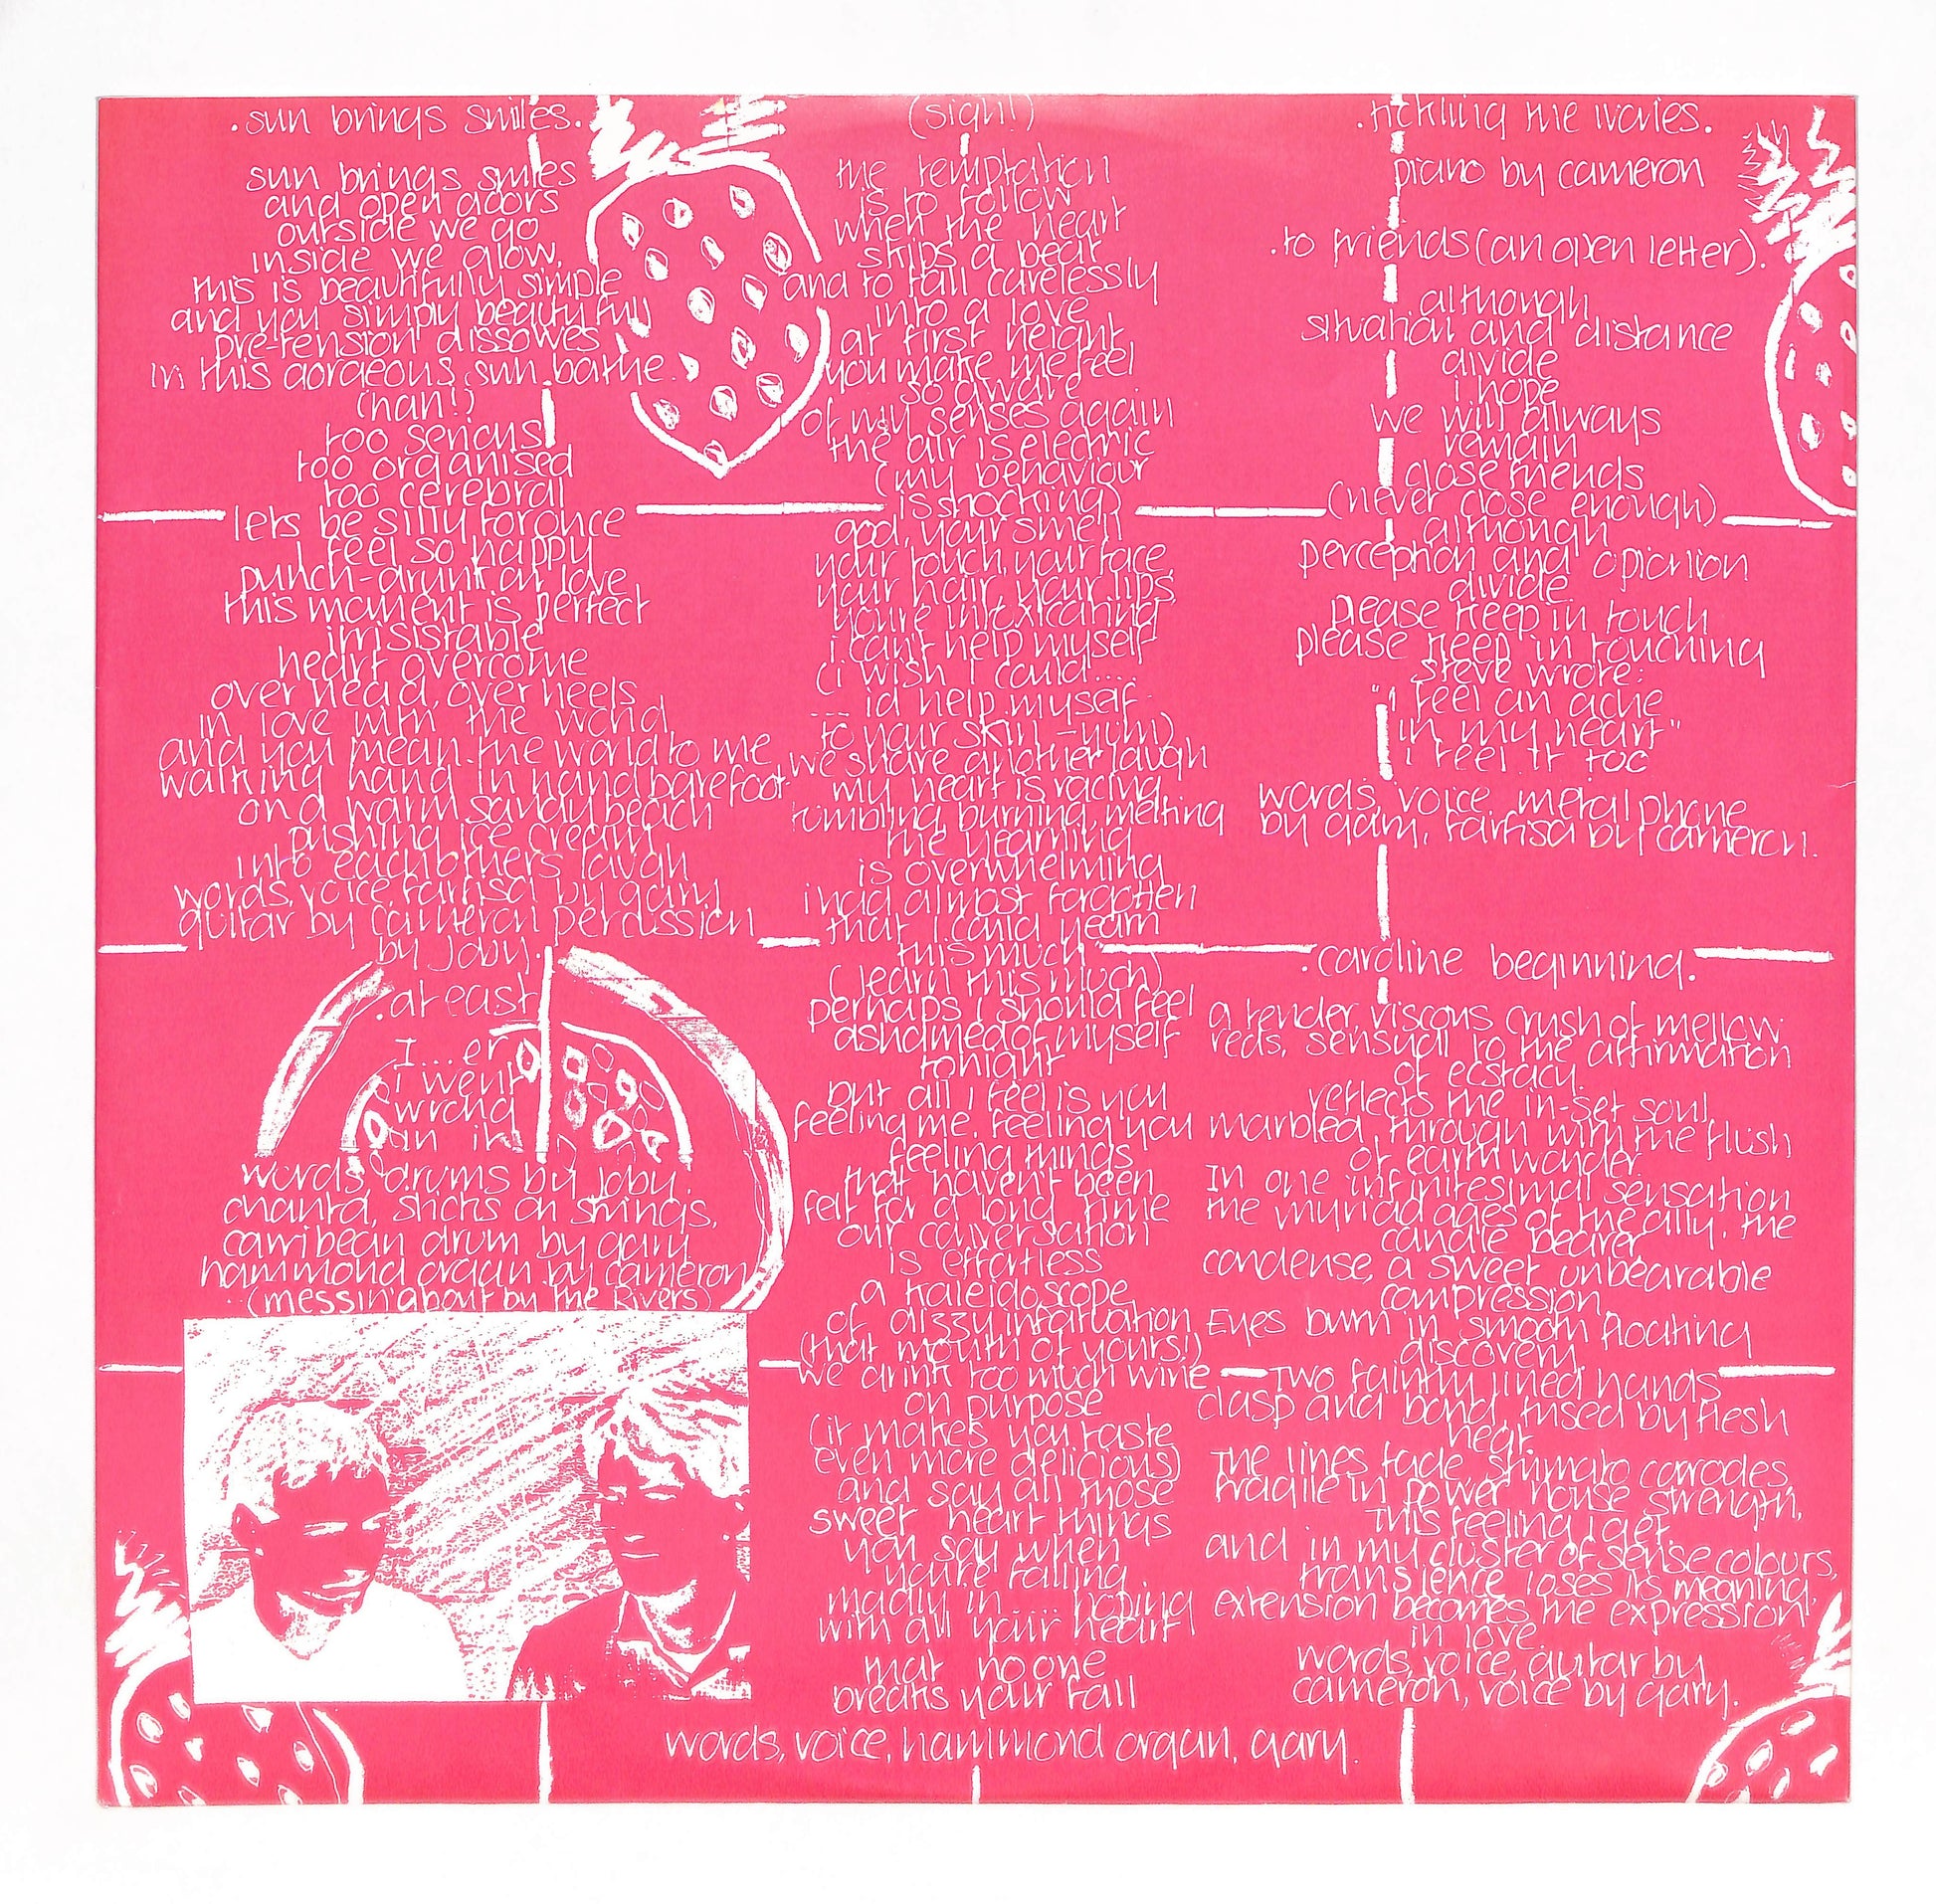 .sun brings smiles.
sun brings smiles
and open doors
outside we go
inside we glow,
this is beautifully simple
and you simply beautyfull
pre-tension dissolves
in this gorgeous sun bathe.
(nah!)
too serious
too organised
too cerebral
lets be silly for once
i feel so happy
punch-drunk on love
this moment is perfect
irrisistable
heart overcome
over head, over heels
in love with the world
and you mean the world to me
walking hand in hand barefoot
on a warm sandy beach
pushing ice cream
into eachothers laugh
words, voice, farfisa by gary
guitar by cameron percussion
by joby.
.at east.
I...er
i went
wrong
on it
words, drums by joby.
chanta, sticks on strings,
carribean drum by gary
hammond organ by cameron
(messin'about by the Rivers)
(sigh!)
the temptation
is to follow
when the heart
skips a beat
and to fall carelessly
into a love
at first height
you make me feel
so aware
of my senses again
the air is electric
(my behaviour
is shocking)
god, your smell
your touch, your face,
your hair, your lips
you're intoxicating
i can't help myself
(i wish i could....
... id help myself
to your skin - yum)
we share another laugh
my heart is racing
tumbling, burning, melting
the yearning
is overwhelming
i had almost forgotten
that i could yearn
this much
(learn this much)
perhaps i should feel
ashamed of myself
tonight
but all i feel is you
feeling me, feeling you
feeling things
that haven't been
felt for a long time
our conversation
is effortless
a kaleidoscope
of dizzy infatuation
(that mouth of yours!)
we drink too much wine
on purpose
(it makes you taste
even more delicious)
and say all those
sweet heart things
you say when
you're falling
madly in ..... hoping
with all your heart
that no one
breaks your fall
words, voice, hammond organ, gary.
.tickling the ivories.
piano by cameron
.to friends (an open letter).
although
situation and distance
divide
i hope
we will always
remain
close friends
(never close enough)
although
perception and opionion
divide
please keep in touch
please keep in touching
steve wrote:
"i feel an ache
in my heart"
i feel it too
words, voice, metalphone
by gary, farfisa by cameron.
.caroline beginning.
a tender, viscous crush of mellow
reds, sensual to the affirmation
of ecstacy.
reflects the in-set soul,
marbled, through with the flush
of earth wonder.
In one infinitesimal sensation
the myriad ages of the ally, the
candle bearer,
condense, a sweet unbearable
compression,
Eyes burn in smooth floating
discovery.
Two faintly lined hands
clasp and bond, fused by flesh
heat.
The lines fade, sfumato corrodes,
fragile in power house strength,
This feeling i get.
and in my cluster of sense colours,
transience loses its meaning,
extension becomes the expression
in love.
words, voice, guitar by
cameron, voice by gary.